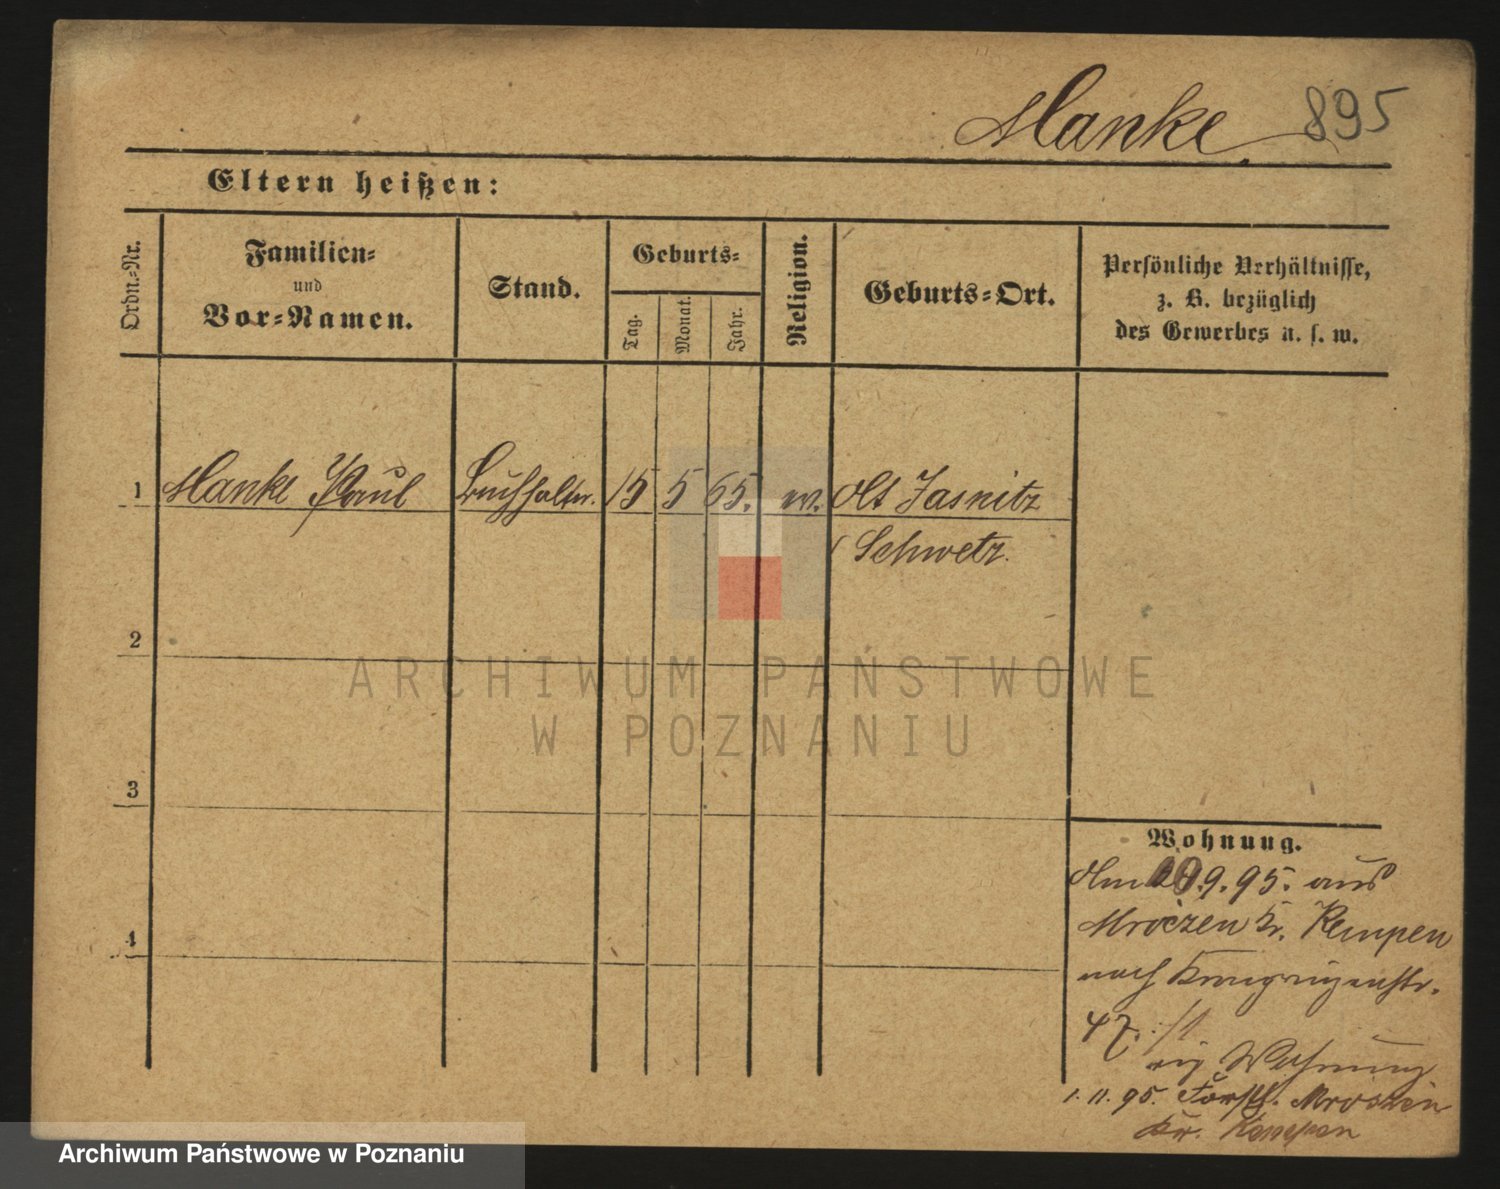 Manke 895
Eltern heißen:
Ordn.-Nr.
Familien-
und
Vor-Namen.
Stand.
Geburts-
Tag.
Monat.
Jahr.
Religion.
Geburts-Ort.
Persönliche Verhältnisse,
z. B. bezüglich
des Gewerbes u. s. w.
1 Manke Paul Buchhalter. 15 5 65. ev. Alt Jasnitz
Schwetz.
2
3
4
ARCHIWUM PAŃSTWOWE
W POZNANIU
Wohnung.
Am 9.95. aus
Mroczen Kr. Kempen
nach
47.
eig Wohnung
1.11.95. Mroczen
Kr. Kempen
Archiwum Państwowe w Poznaniu